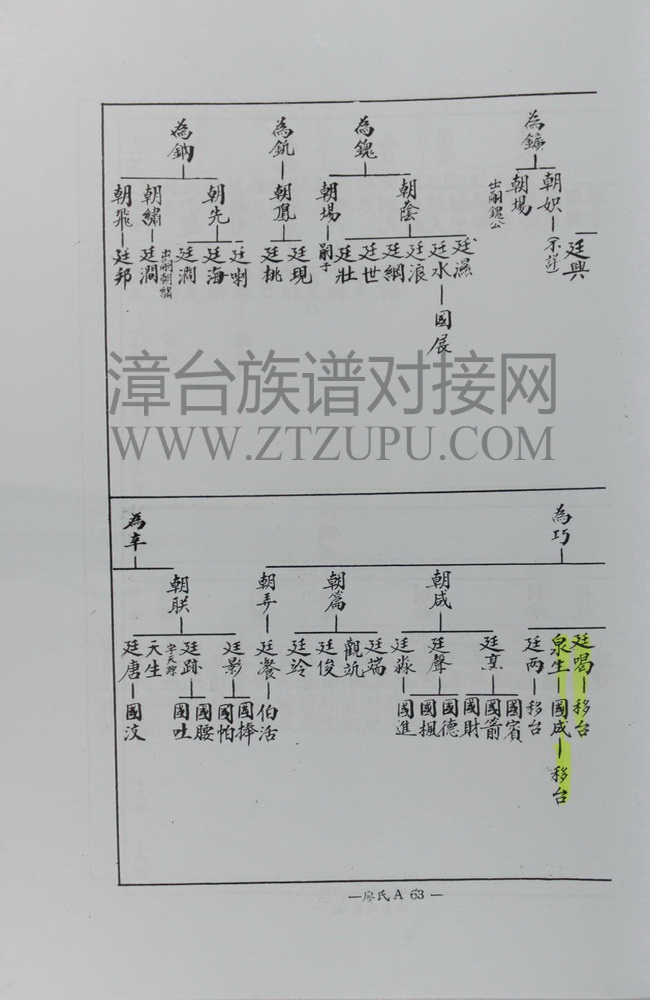 廷興
為鑛
朝炽
不詳
朝場
出嗣鎴公
為鎴
朝蔭
廷濕
廷水
國展
廷浪
廷綱
廷世
廷壯
朝場
嗣子
為釚
朝鳳
廷現
廷桃
為鈉
朝先
廷喇
廷海
廷澗
出嗣朝繡
朝繡
廷澗
朝飛
廷邦
漳台族谱对接网
WWW.ZTZUPU.COM
為巧
廷喝
移台
泉生
國成
移台
廷两
移台
朝成
廷烹
國賓
國箭
國財
廷聲
國德
國楓
廷淼
國進
朝篇
廷端
觀坑
廷俊
廷竛
朝弄
廷養
伯活
為車
朝朕
廷影
國捧
國怕
廷跡
國腰
國吐
天生
廷唐
國汶
—廖氏 A 63 —